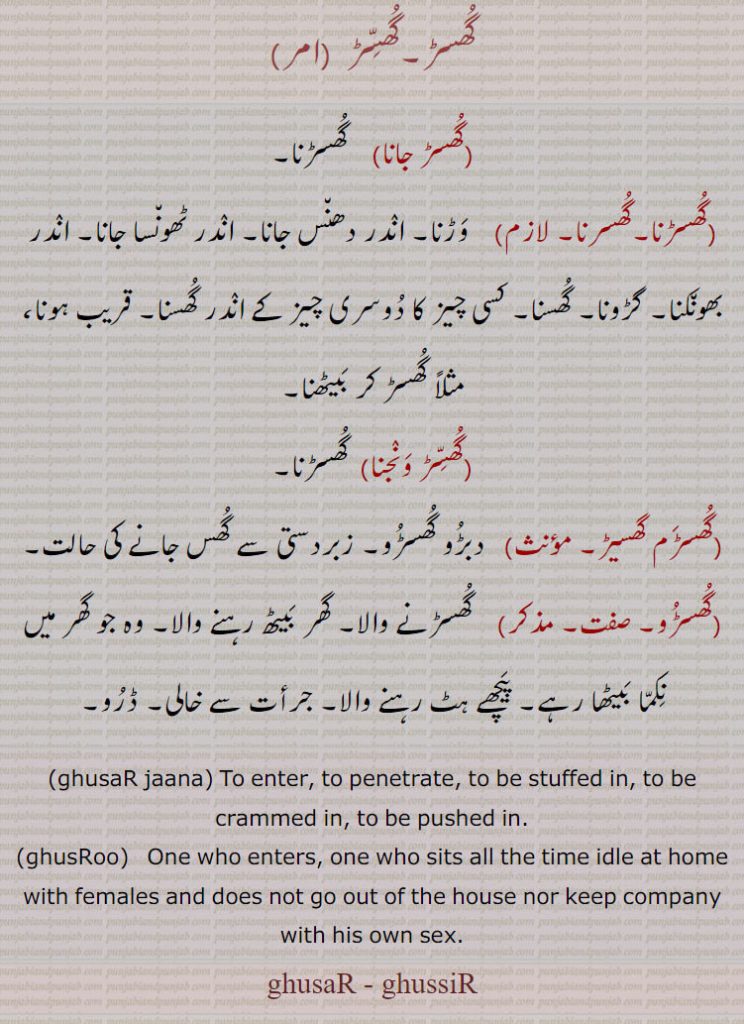 گُھسڑ۔ گُھسِّڑ (امر)
(گُھسڑ جانا) گُھسڑنا۔
(گُھسڑنا۔ گُھسرنا۔ لازم) وَڑنا۔ انْدر دھنّس جانا۔ انْدر ٹھونْسا جانا۔ انْدر
بھونْکنا۔ گڑونا۔ گُھسنا۔ کسی چیز کا دُوسری چیز کے انْدر گُھسنا۔ قریب ہونا،
مثلاً گُھسڑ کر بَیٹھنا۔
(گُھسِّڑ وَنْجنا) گُھسڑنا۔
(گُھسڑَم گھسیڑ۔ مؤنث) دبڑُو گُھسڑُو۔ زبردستی سے گُھس جانے کی حالت۔
(گُھسڑُو۔ صفت۔ مذکر) گُھسڑنے والا۔ گھر بَیٹھ رہنے والا۔ وہ جو گھر میں
نِکمّا بَیٹھا رہے۔ پَیچھے ہٹ رہنے والا۔ جرأت سے خالی۔ ڈرُو۔
(ghusaR jaana) To enter, to penetrate, to be stuffed in, to be
crammed in, to be pushed in.
(ghusRoo) One who enters, one who sits all the time idle at home
with females and does not go out of the house nor keep company
with his own sex.
ghusaR - ghussiR